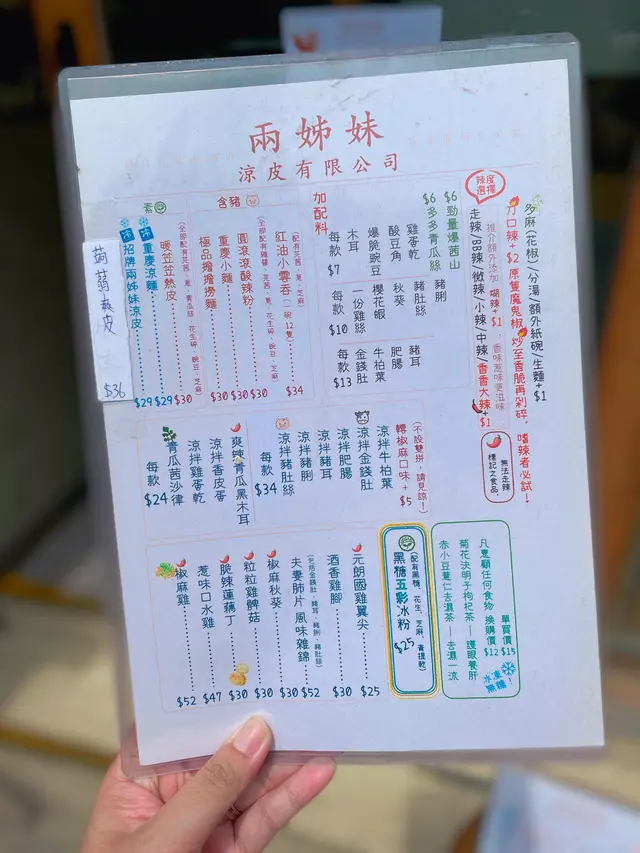 兩姊妹
涼皮有限公司
辣度選擇
多麻(花椒)/分湯/額外紙碗/生麵+$1
加口辣+$2 原隻魔鬼椒，炒至香脆再剁碎，嗜辣者必試！
推介額外添加 糊辣+$1 香味惹味更滋味
走辣/BB辣/微辣/小辣/中辣/香香大辣+$1
標記之食品，無法走辣
加配料
$6 勁量爆茜山
$6 多多青瓜絲
每款$7
木耳
爆脆豌豆
酸豆角
雞蛋乾
每款$10
一份雞絲
櫻花蝦
秋葵
豬肚絲
豬脷
每款$13
金錢肚
牛柏葉
肥腸
豬耳
含豬
(配有芫茜、蔥、芝麻)
紅油小雲吞(一碗12隻) $34
圓滾滾酸辣粉 $30
重慶小麵 $30
極品擔擔撈麵 $30
素
暖笠笠熱皮 $30
重慶涼麵 $29
招牌兩姊妹涼皮 $29
蒟蒻涼皮 $36
(不設雙拼，請見諒！)
轉椒麻口味+$5
涼拌牛柏葉
涼拌金錢肚
涼拌肥腸
涼拌豬耳
涼拌豬脷
涼拌豬肚絲
每款$34
爽辣青瓜黑木耳
涼拌香皮蛋
涼拌雞蛋乾
青瓜茜沙律
每款$24
凡惠顧任何食物 換購價$12 單買價$15
菊花決明子枸杞茶—護眼養肝
赤小豆薏仁去濕茶—去濕一流
冰凍無糖！
黑糖五彩冰粉 $25
(配有黑糖、花生、芝麻、青提乾)
元朗國雞翼尖 $25
酒香雞腳 $30
夫妻肺片 風味雜錦 $52
(包括金錢肚、豬耳、豬脷、豬肚絲)
椒麻秋葵 $30
粒粒雞髀菇 $30
脆辣蓮藕丁 $30
惹味口水雞 $47
椒麻雞 $52